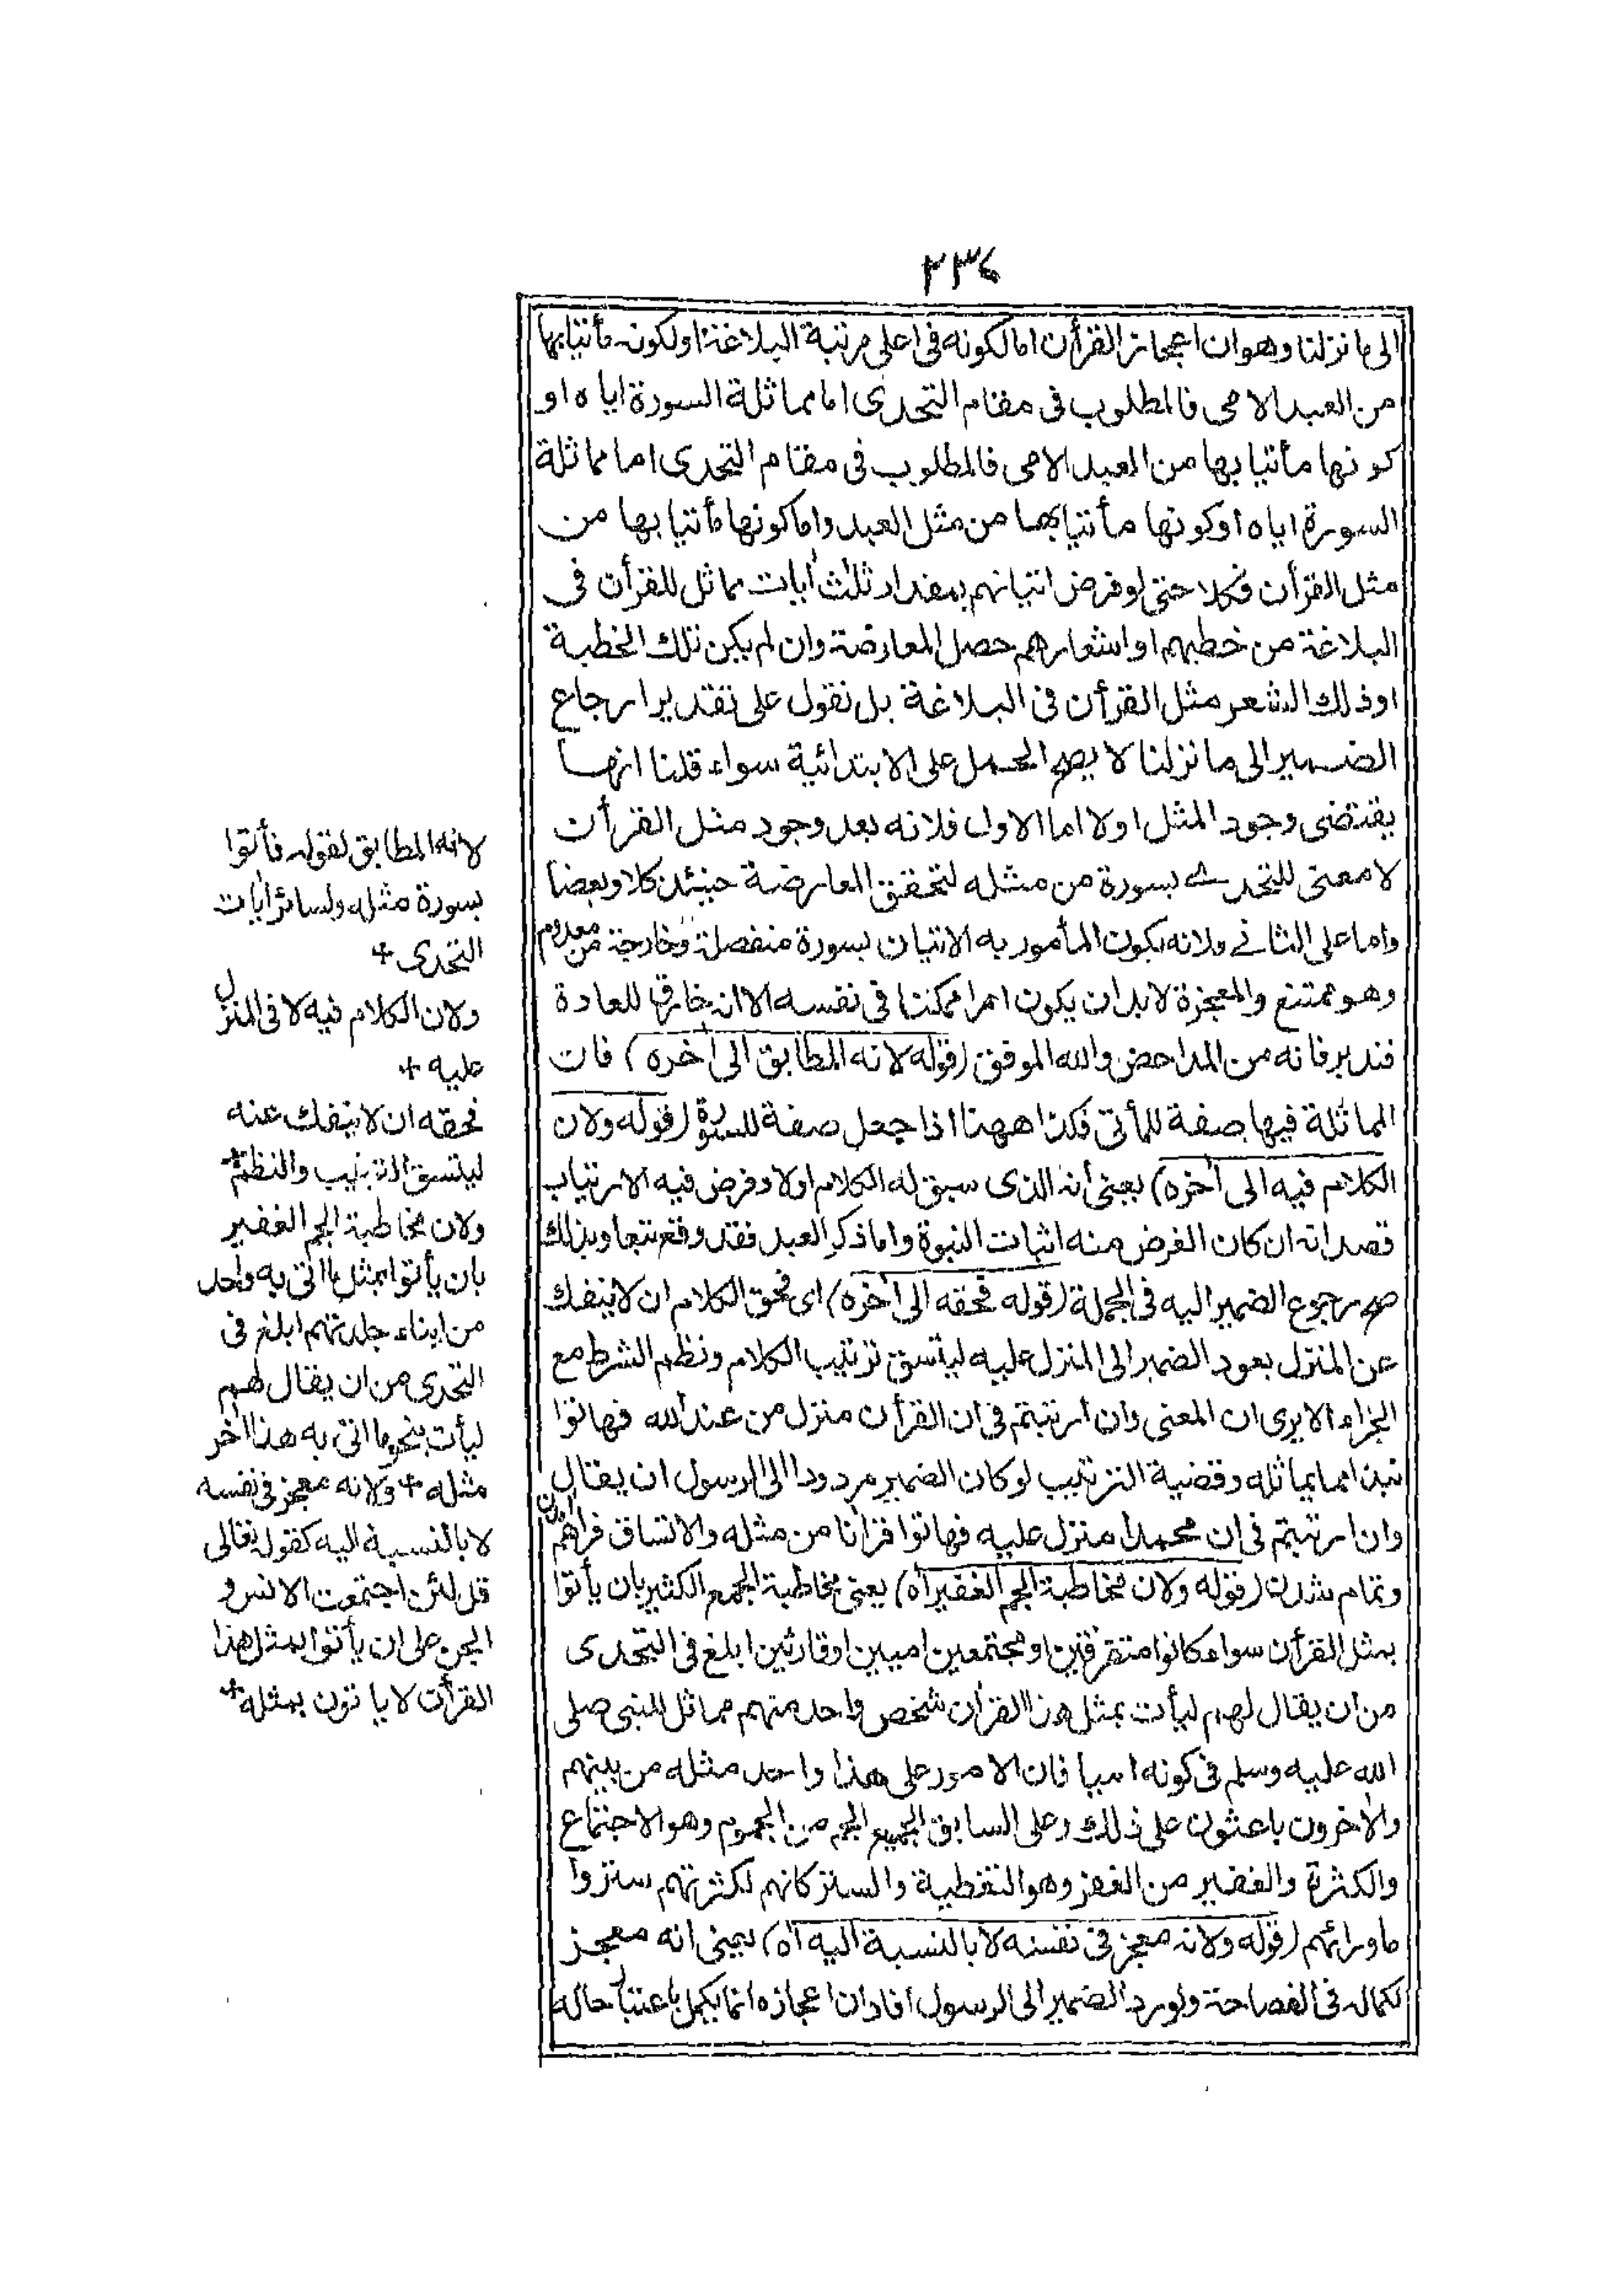 ٢٣٤
الى ما نزلنا وهو ان اعجاز القرأن اما لكونه فى اعلى مرتبة البلاغة او لكونه مأتيا بها
من العبد الامى فالمطلوب فى مقام التحدى اما مماثلة السورة اياه او
كونها مأتيا بها من العبد الامى فالمطلوب فى مقام التحدى اما مماثلة
السورة اياه او كونها مأتيا بها من مثل العبد واما كونها مأتيا بها من
مثل القرأن فكلا حتى لو فرض اتيانهم بمقدار ثلث أيات مماثل للقرأن فى
البلاغة من خطبهم او اشعارهم حصل المعارضة وان لم يكن تلك الخطبة
او ذلك الشعر مثل القرأن فى البلاغة بل نقول على تقدير ارجاع
الضمير الى ما نزلنا لا يصح الحمل على الابتدائية سواء قلنا انها
يقتضى وجود المثل او لا اما الاول فلانه بعد وجود مثل القرأن
لا معنى للتحدے بسورة من مثله لتحقق المعارضة حينئذ كلا وبعضا
واما على الثانے ولانه يكون المأمور به الاتيان بسورة منفصلة وخارجة من معدوم
وهو ممتنع والمعجزة لابد ان يكون امرا ممكنا فى نفسه الا انه خارق للعادة
فتدبر فانه من المداحض والله الموفق (قوله لانه المطابق الى أخره) فان
المماثلة فيها صفة للمأتى فكذا ههنا اذا جعل صفة للسورة (قوله ولان
الكلام فيه الى أخره) يعنى أنه الذى سبق له الكلام اولا وفرض فيه الارتياب
قصدا انه ان كان الغرض منه اثبات النبوة واما ذكر العبد فقد وقع تبعا وبذلك
صح رجوع الضمير اليه فى الجملة (قوله فحقه الى أخره) اى فحق الكلام ان لا ينفك
عن المنزل بعود الضمير الى المنزل عليه ليتسق ترتيب الكلام ونظم الشرط مع
الجزاء الا يرى ان المعنى وان ارتبتم فى ان القرأن منزل من عند الله فهاتوا
نبذا مما يماثله وقضية الترتيب لو كان الضمير مردودا الى الرسول ان يقال
وان ارتبتم فى ان محمدا منزل عليه فهاتوا قرأنا من مثله والاتساق فراهم أمدن
وتمام شدن (قوله ولان مخاطبة الجم الغفير اه) يعنى مخاطبة الجمع الكثير بان يأتوا
بمثل القرأن سواء كانوا متفرقين او مجتمعين اميين او قارئين ابلغ فى التحدى
من ان يقال لهم ليأت بمثل هذا القرأن شخص واحد منهم مماثل للنبى صلى
الله عليه وسلم فى كونه اميا فان الامور على هذا واحد مثله من بينهم
والأخرون باعثون على ذلك وعلى السابق الجميع الجم من الجموم وهو الاجتماع
والكثرة والغفير من الغفر وهو التغطية والستر كانهم لكثرتهم ستروا
ما ورائهم (قوله ولانه معجز فى نفسه لا بالنسبة اليه اه) يعنى انه معجز
لكماله فى الفصاحة ولو رد الضمير الى الرسول افاد ان اعجازه انما يكمل باعتبار حاله
لانه المطابق لقوله فأتوا
بسورة مثله ولسائر أيات
التحدى +
ولان الكلام فيه لا فى المنزل
عليه +
فحقه ان لا ينفك عنه
ليتسق الترتيب والنظم +
ولان مخاطبة الجم الغفير
بان يأتوا بمثل ما اتى به واحد
من ابناء جلدتهم ابلغ فى
التحدى من ان يقال لهم
ليأت بنحو ما اتى به هذا أخر
مثله + ولانه معجز فى نفسه
لا بالنسبة اليه كقوله تعالى
قل لئن اجتمعت الانس و
الجن على ان يأتوا بمثل هذا
القرأن لا ياتون بمثله +